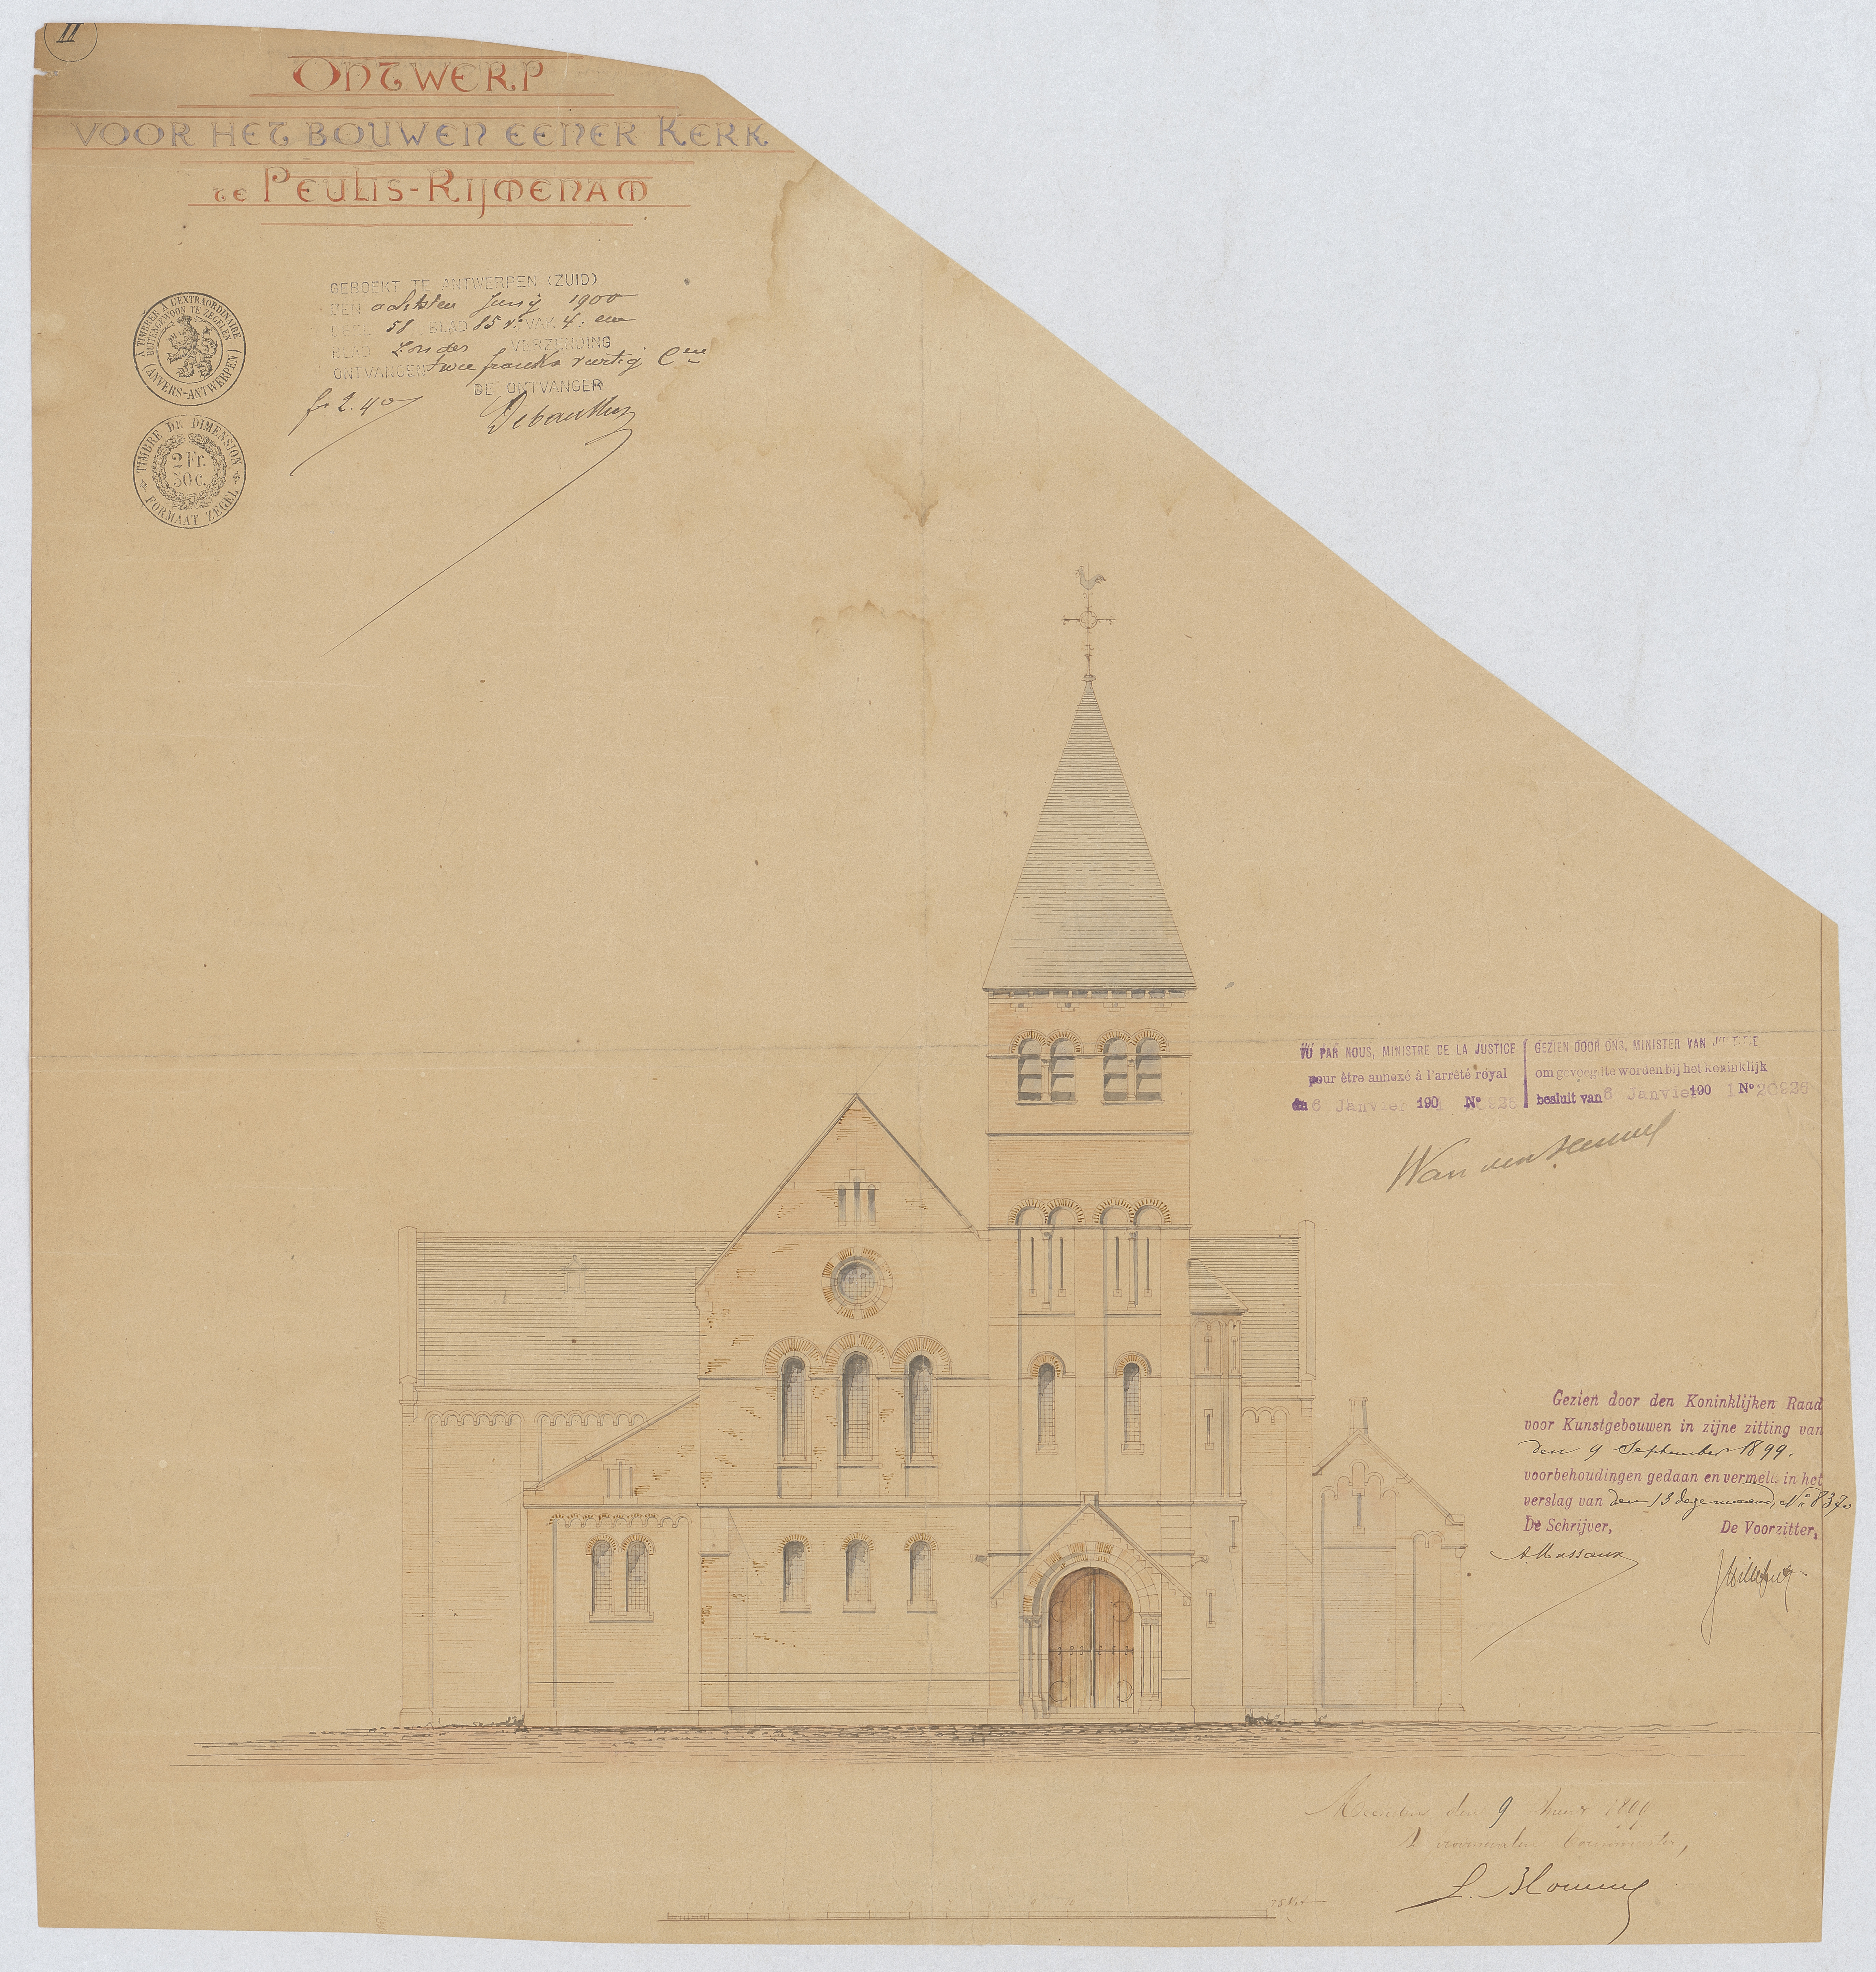 II
ONTWERP
VOOR HET BOUWEN EENER KERK
TE PEULIS-RIJMENAM
A TIMBRER À L'EXTRAORDINAIRE
BUITENGEWOON TE ZEGELEN
(ANVERS-ANTWERPEN)
TIMBRE DE DIMENSION
2 Fr.
50 C.
FORMAAT ZEGEL
GEBOEKT TE ANTWERPEN (ZUID)
DEN achtsten Junij 1900
DEEL 58 BLAD 85 v° VAK 4: een
BLAD Zonder VERZENDING
ONTVANGEN twee franks veertig Cen
DE ONTVANGER
fr 2.40
VU PAR NOUS, MINISTRE DE LA JUSTICE
pour être annexé à l'arrêté royal
du 6 Janvier 1901 No 926
GEZIEN DOOR ONS, MINISTER VAN JUSTITIE
om gevoegd te worden bij het koninklijk
besluit van 6 Janvier 1901 No 20926
Gezien door den Koninklijken Raad
voor Kunstgebouwen in zijne zitting van
den 9 September 1899.
voorbehoudingen gedaan en vermeld in het
verslag van den 13 dezer maand, No 8370
De Schrijver, De Voorzitter,
A. Massaux
den 9 1899
De provincialen bouwmeester,
L. Blomme
25 Met